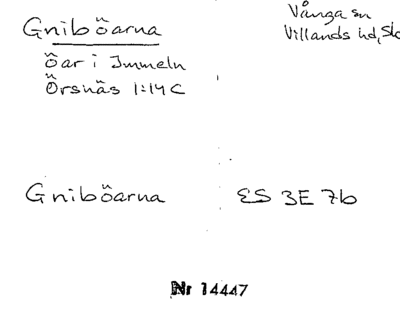 Gniböarna
Vånga sn
Villands hd, Sk
öar i Immeln
Örsnäs 1:14 C
Gniböarna
ES 3E 7b
Nr 14447